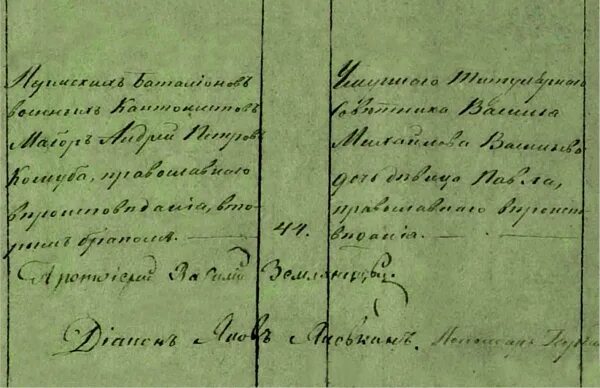 Пермскихъ баталіоновъ
военныхъ Кантонистовъ
Маіоръ Андрей Петровъ
Колуба, православнаго
вѣроисповѣданія, вто-
рымъ бракомъ.
44.
Умершаго Титулярнаго
Совѣтника Василія
Михайлова Васильева
дочь дѣвица Павла,
православнаго вѣроисп-
вѣданія.
Протоіерей Василій
Діаконъ Яковъ Пономарь